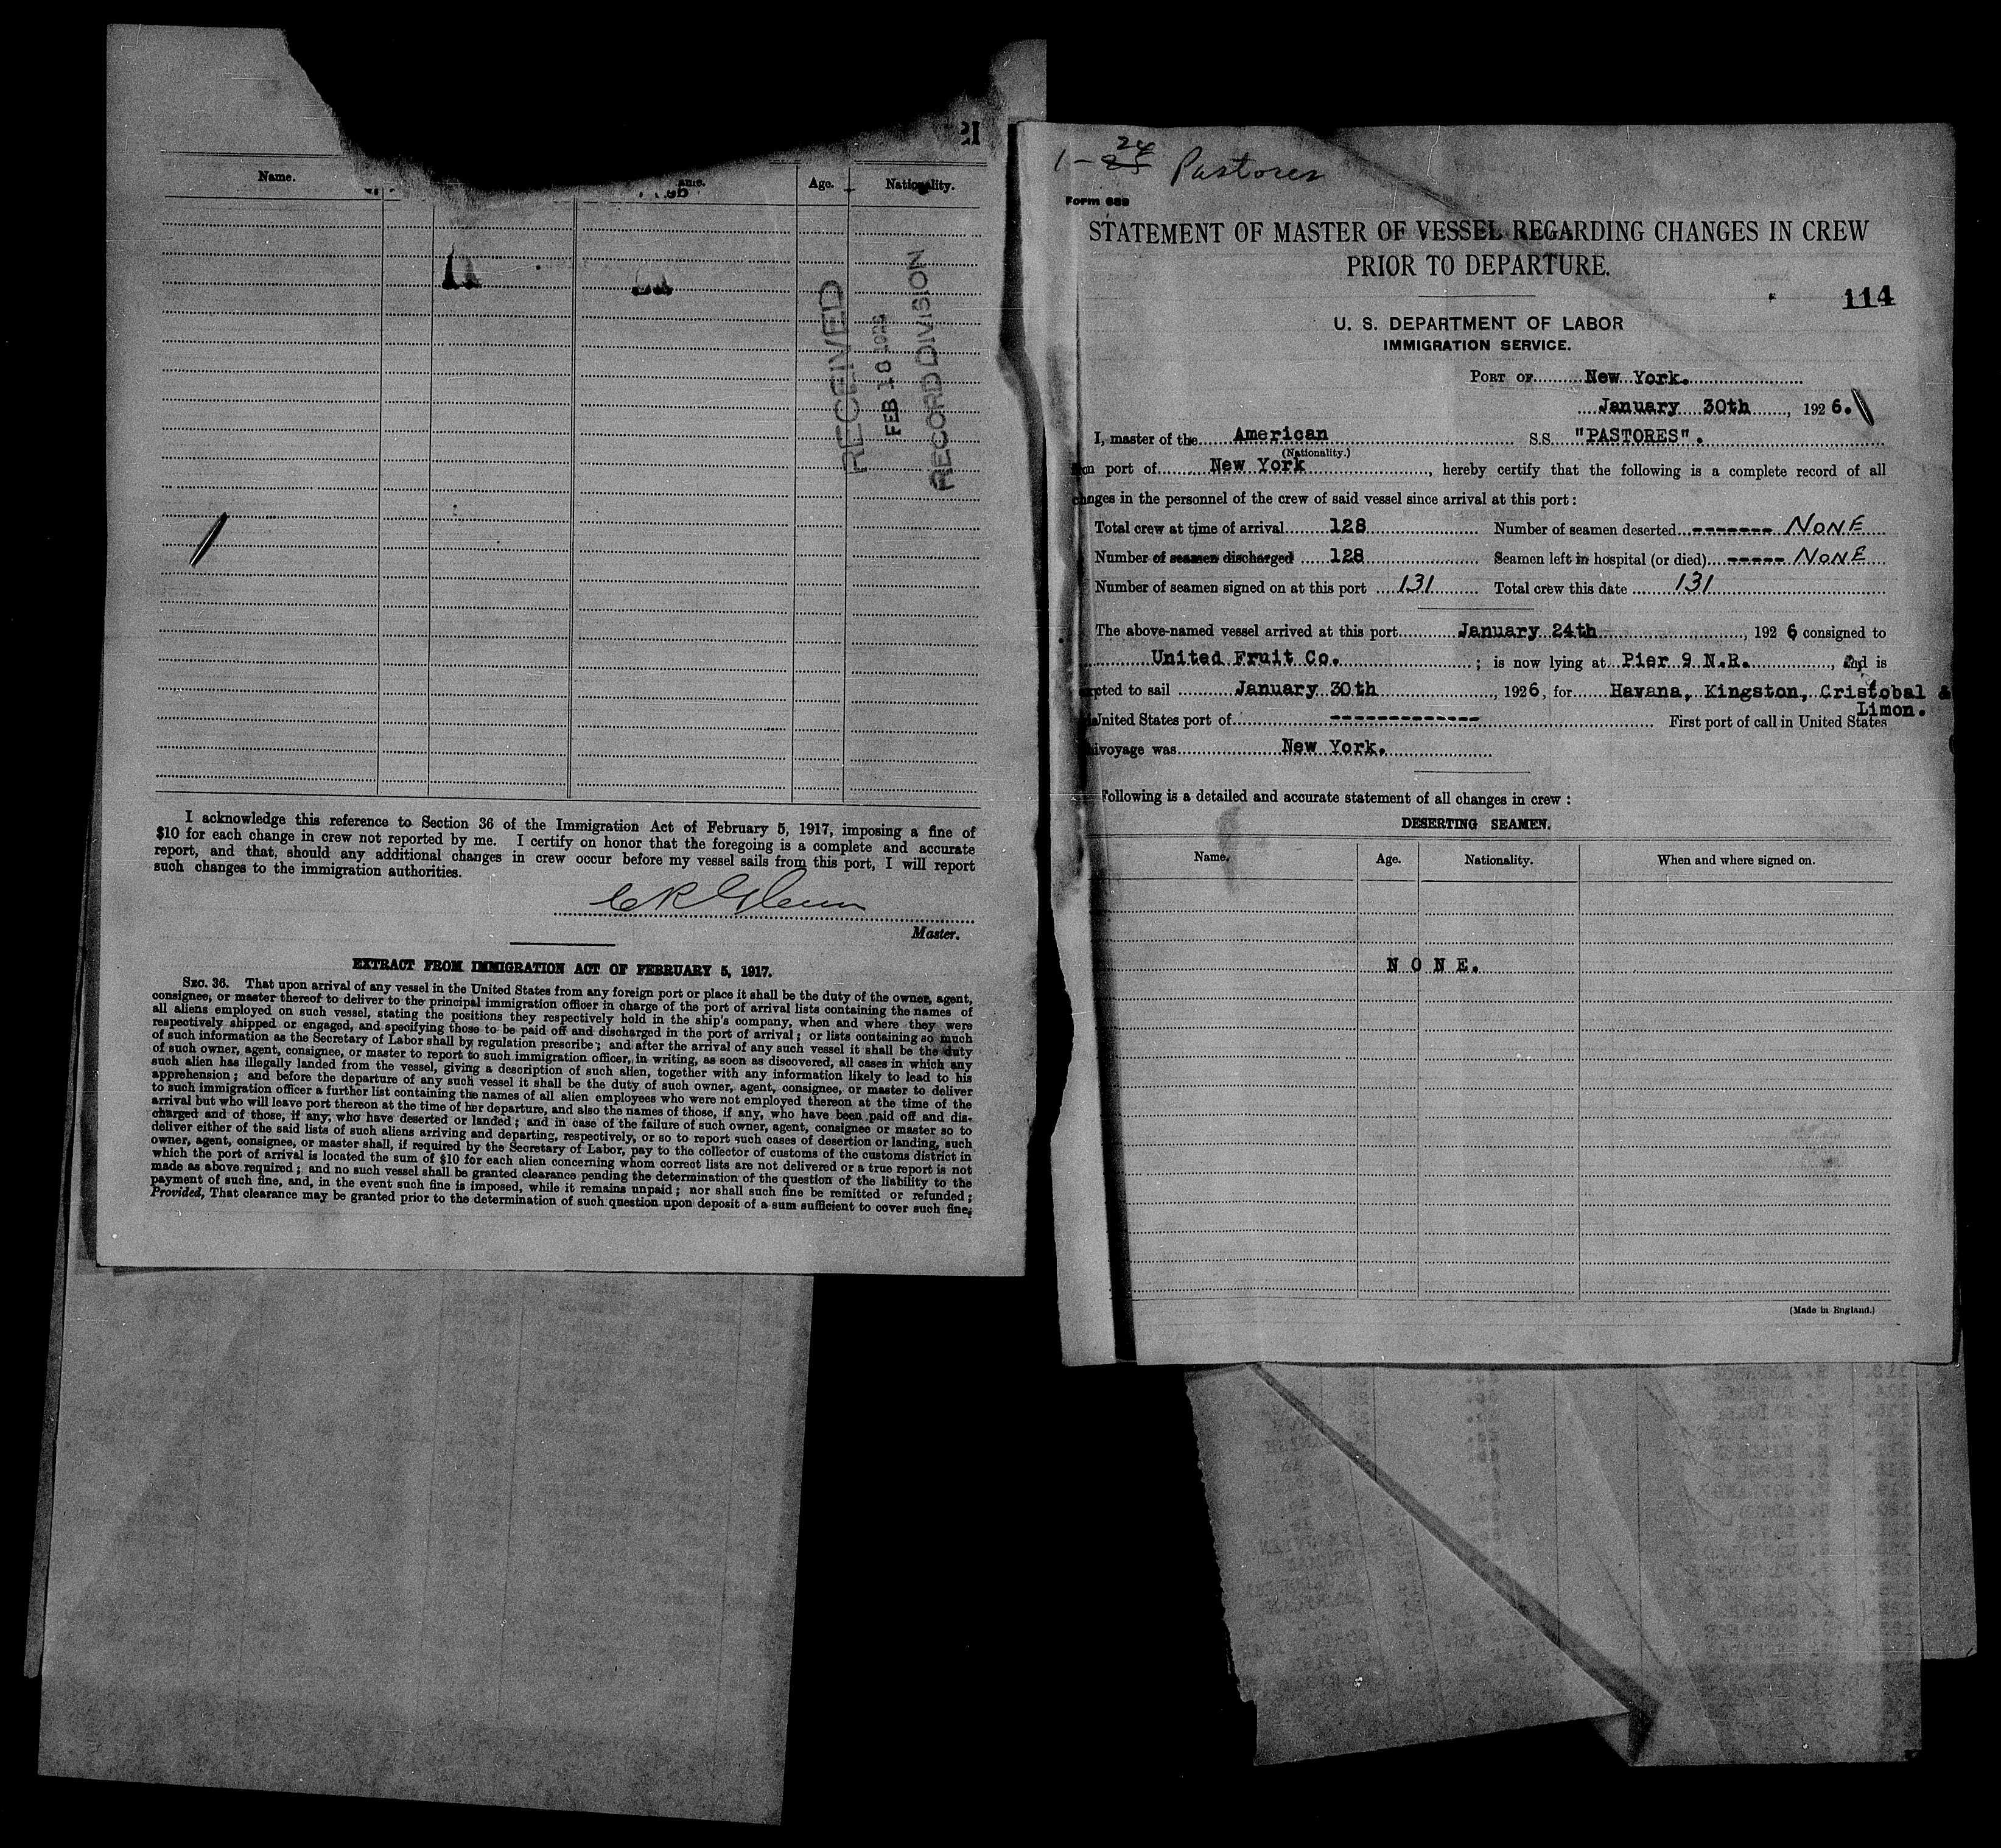 Name.
Age.
Nationality.
RECEIVED
FEB 18 1926
RECORD DIVISION
I acknowledge this reference to Section 36 of the Immigration Act of February 5, 1917, imposing a fine of
$10 for each change in crew not reported by me. I certify on honor that the foregoing is a complete and accurate
report, and that, should any additional changes in crew occur before my vessel sails from this port, I will report
such changes to the immigration authorities.
C R Glenn
Master.
EXTRACT FROM IMMIGRATION ACT OF FEBRUARY 5, 1917.
SEC. 36. That upon arrival of any vessel in the United States from any foreign port or place it shall be the duty of the owner, agent,
consignee, or master thereof to deliver to the principal immigration officer in charge of the port of arrival lists containing the names of
all aliens employed on such vessel, stating the positions they respectively hold in the ship's company, when and where they were
respectively shipped or engaged, and specifying those to be paid off and discharged in the port of arrival; or lists containing so much
of such information as the Secretary of Labor shall by regulation prescribe; and after the arrival of any such vessel it shall be the duty
of such owner, agent, consignee, or master to report to such immigration officer, in writing, as soon as discovered, all cases in which any
such alien has illegally landed from the vessel, giving a description of such alien, together with any information likely to lead to his
apprehension; and before the departure of any such vessel it shall be the duty of such owner, agent, consignee, or master to deliver
to such immigration officer a further list containing the names of all alien employees who were not employed thereon at the time of the
arrival but who will leave port thereon at the time of her departure, and also the names of those, if any, who have been paid off and dis-
charged and of those, if any, who have deserted or landed; and in case of the failure of such owner, agent, consignee or master so to
deliver either of the said lists of such aliens arriving and departing, respectively, or so to report such cases of desertion or landing, such
owner, agent, consignee, or master shall, if required by the Secretary of Labor, pay to the collector of customs of the customs district in
which the port of arrival is located the sum of $10 for each alien concerning whom correct lists are not delivered or a true report is not
made as above required; and no such vessel shall be granted clearance pending the determination of the question of the liability to the
payment of such fine, and, in the event such fine is imposed, while it remains unpaid; nor shall such fine be remitted or refunded;
Provided, That clearance may be granted prior to the determination of such question upon deposit of a sum sufficient to cover such fine;
1-24 Pastores
Form 689
STATEMENT OF MASTER OF VESSEL REGARDING CHANGES IN CREW
PRIOR TO DEPARTURE.
114
U. S. DEPARTMENT OF LABOR
IMMIGRATION SERVICE.
PORT OF New York.
January 30th, 1926.
I, master of the American S.S. "PASTORES".
(Nationality.)
port of New York, hereby certify that the following is a complete record of all
changes in the personnel of the crew of said vessel since arrival at this port:
Total crew at time of arrival 128 Number of seamen deserted ------- NONE
Number of seamen discharged 128 Seamen left in hospital (or died) ----- NONE
Number of seamen signed on at this port 131 Total crew this date 131
The above-named vessel arrived at this port January 24th, 1926 consigned to
United Fruit Co. ; is now lying at Pier 9 N.R., and is
to sail January 30th, 1926, for Havana, Kingston, Cristobal &
Limon.
United States port of ------------- First port of call in United States
voyage was New York.
Following is a detailed and accurate statement of all changes in crew:
DESERTING SEAMEN.
Name. Age. Nationality. When and where signed on.
NONE.
(Made in England.)